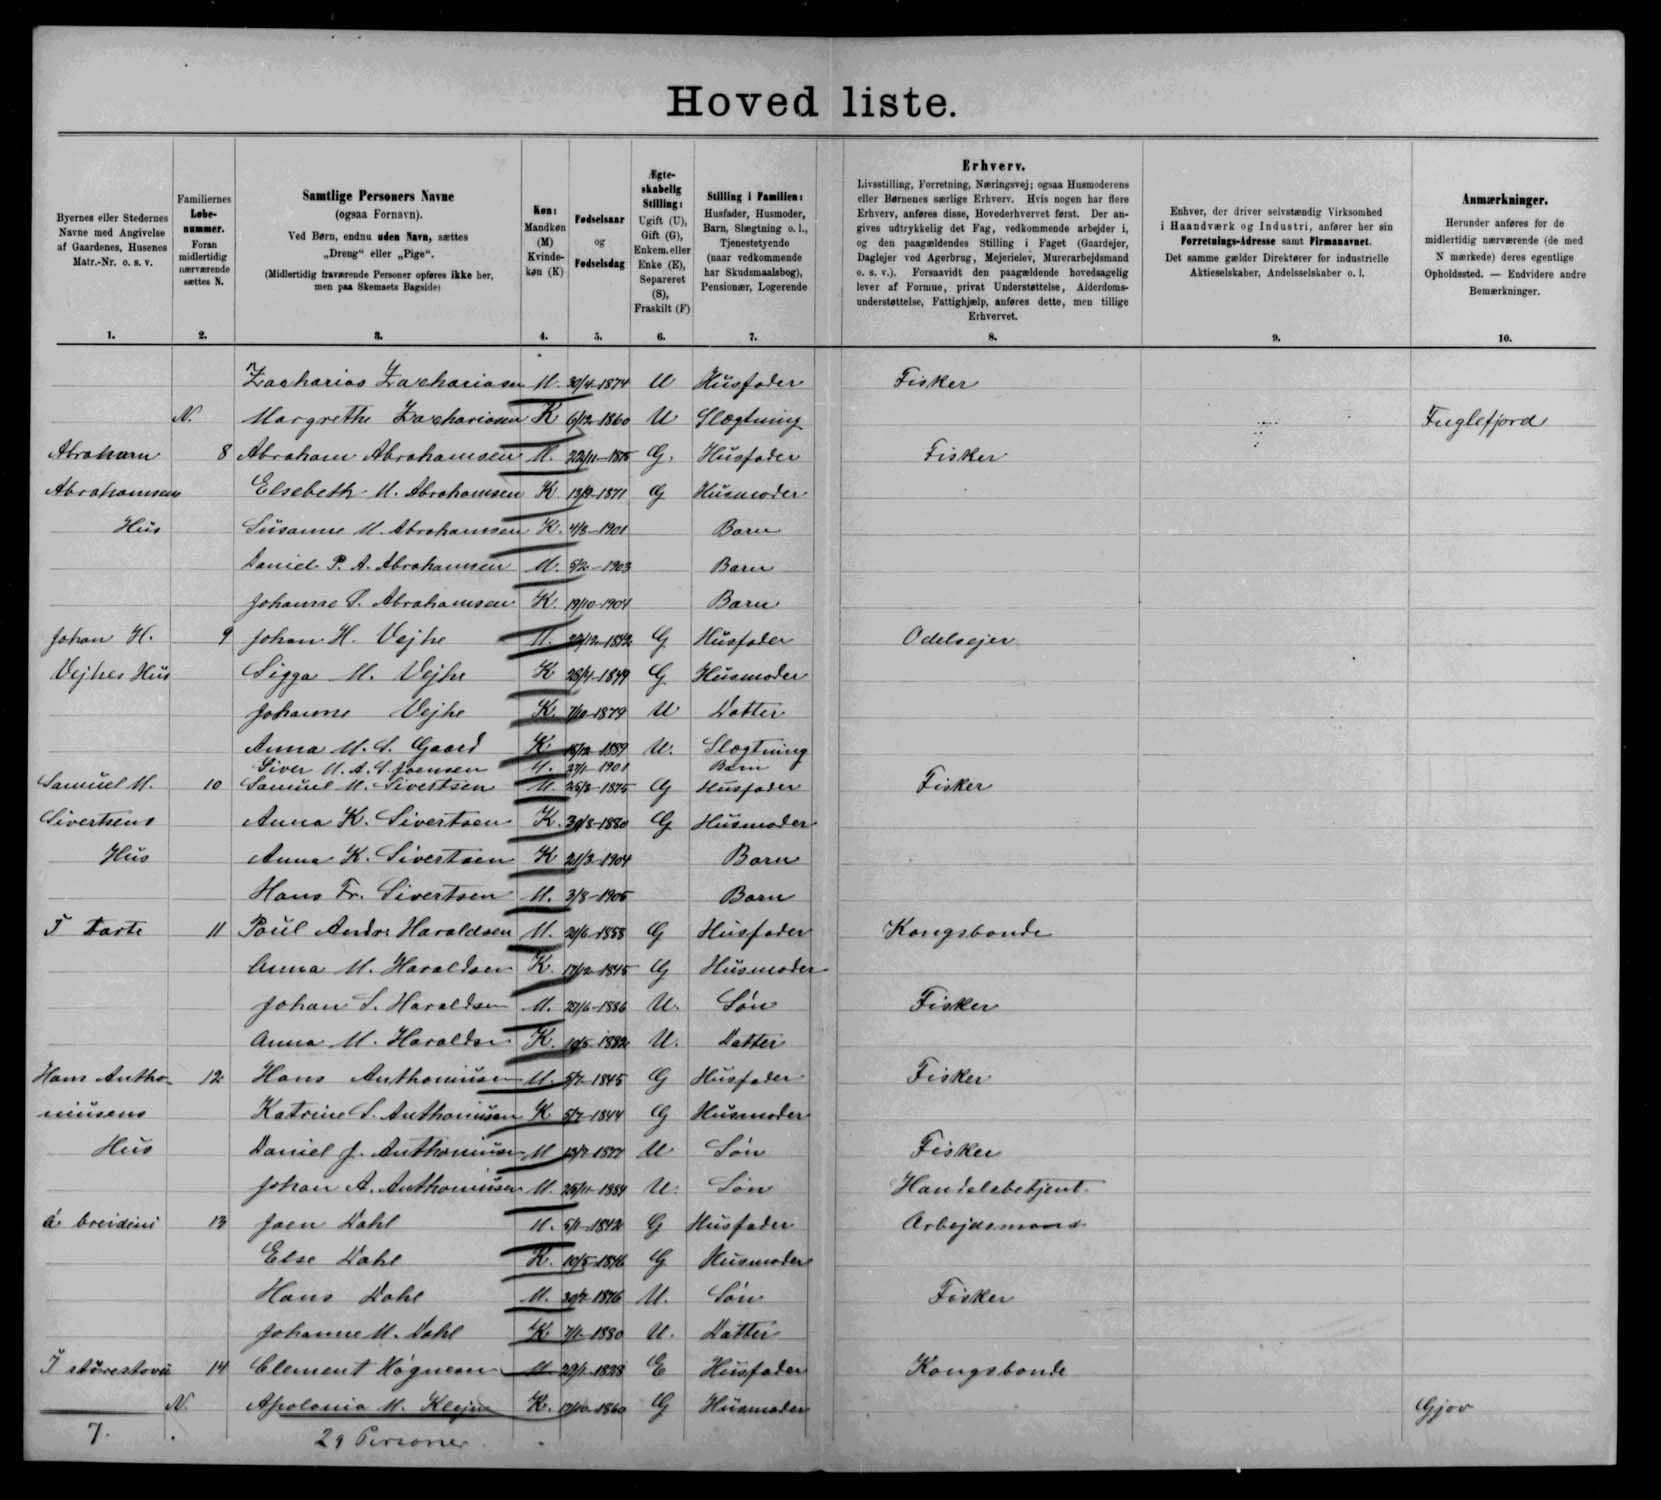 Hovedliste.
Byernes eller Stedernes Navne med Angivelse af Gaardenes, Husenes Matr.-Nr. o. s. v.
Familiernes Løbenummer. Foran midlertidig nærværende sættes N.
Samtlige Personers Navne (ogsaa Fornavn). Ved Børn, endnu uden Navn, sættes „Dreng“ eller „Pige“. (Midlertidig fraværende Personer opføres ikke her, men paa Skemaets Bagside)
Køn: Mandkøn (M) Kvindekøn (K)
Fødselsaar og Fødselsdag
Ægteskabelig Stilling: Ugift (U), Gift (G), Enkem. eller Enke (E), Separeret (S), Fraskilt (F)
Stilling i Familien: Husfader, Husmoder, Barn, Slægtning o. l., Tjenestetyende (naar vedkommende har Skudsmaalsbog), Pensionær, Logerende
Erhverv. Livsstilling, Forretning, Næringsvej; ogsaa Husmoderens eller Børnenes særlige Erhverv. Hvis nogen har flere Erhverv, anføres disse, Hovederhvervet først. Der angives udtrykkelig det Fag, vedkommende arbejder i, og den paagældendes Stilling i Faget (Gaardejer, Daglejer ved Agerbrug, Mejerielev, Murerarbejdsmand o. s. v.). Forsaavidt den paagældende hovedsagelig lever af Formue, privat Understøttelse, Alderdomsunderstøttelse, Fattighjælp, anføres dette, men tillige Erhvervet.
Enhver, der driver selvstændig Virksomhed i Haandværk og Industri, anfører her sin Forretnings-Adresse samt Firmanavnet. Det samme gælder Direktører for industrielle Aktieselskaber, Andelsselskaber o. l.
Anmærkninger. Herunder anføres for de midlertidig nærværende (de med N mærkede) deres egentlige Opholdssted. — Endvidere andre Bemærkninger.
1. 2. 3. 4. 5. 6. 7. 8. 9. 10.
Zacharias Zachariasen M. 30/4-1874 U Husfader Fisker
N. Margrethe Zachariasen K 6/12-1860 U Slægtning Fuglefjord
Abraham 8 Abraham Abrahamsen M. 22/11-1875 G. Husfader Fisker
Abrahamsens Elsebeth M. Abrahamsen K 1871 G Husmoder
Hus Susanne M. Abrahamsen K. 4/8-1901 Barn
Daniel P. A. Abrahamsen M. 5/2-1903 Barn
Johanne P. Abrahamsen K. 19/10-1904 Barn
Johan H. 9 Johan H. Vejhe M. 1842 G Husfader Odelsejer
Vejhes Hus Sigga M. Vejhe K 1849 G Husmoder
Johanne Vejhe K. 7/10-1879 U Datter
Anna M. S. Gaard K U. Slægtning
Siver M. A. S. Joensen M. 27/1-1901 Barn
Samuel M. 10 Samuel M. Sivertsen M. 25/3-1875 G Husfader Fisker
Sivertsens Anna K. Sivertsen K. 1880 G Husmoder
Hus Anna K. Sivertsen K 21/3-1904 Barn
Hans Fr. Sivertsen M. 3/8-1905 Barn
Í 11 Poul Andr. Haraldsen M. G Husfader Kongsbonde
Anna M. Haraldsen K. 17/12-1845 G Husmoder
Johan S. Haraldsen M. 1886 U. Søn Fisker
Anna M. Haraldsen K. 1882 U. Datter
Hans Antho- 12 Hans Anthoniusen M. 5/7-1845 G Husfader Fisker
niusens Katrine S. Anthoniusen K 5/7-1844 G Husmoder
Hus Daniel J. Anthoniusen M 1877 U Søn Fisker
Johan A. Anthoniusen M. 25/11-1884 U. Søn Handelsbetjent
á breidini 13 Joen Dahl M. 5/1-1842 G Husfader Arbejdsmand
Else Dahl K. 10/5-1846 G Husmoder
Hans Dahl M. 1876 U. Søn Fisker
Johanne M. Dahl K 7/1-1880 U. Datter
Í stórestovu 14 Clement Høgnesen M 1828 E Husfader Kongsbonde
N. Apolonia M. Klejn K. 17/10-1860 G Husmoder Gjov
7. 29 Personer